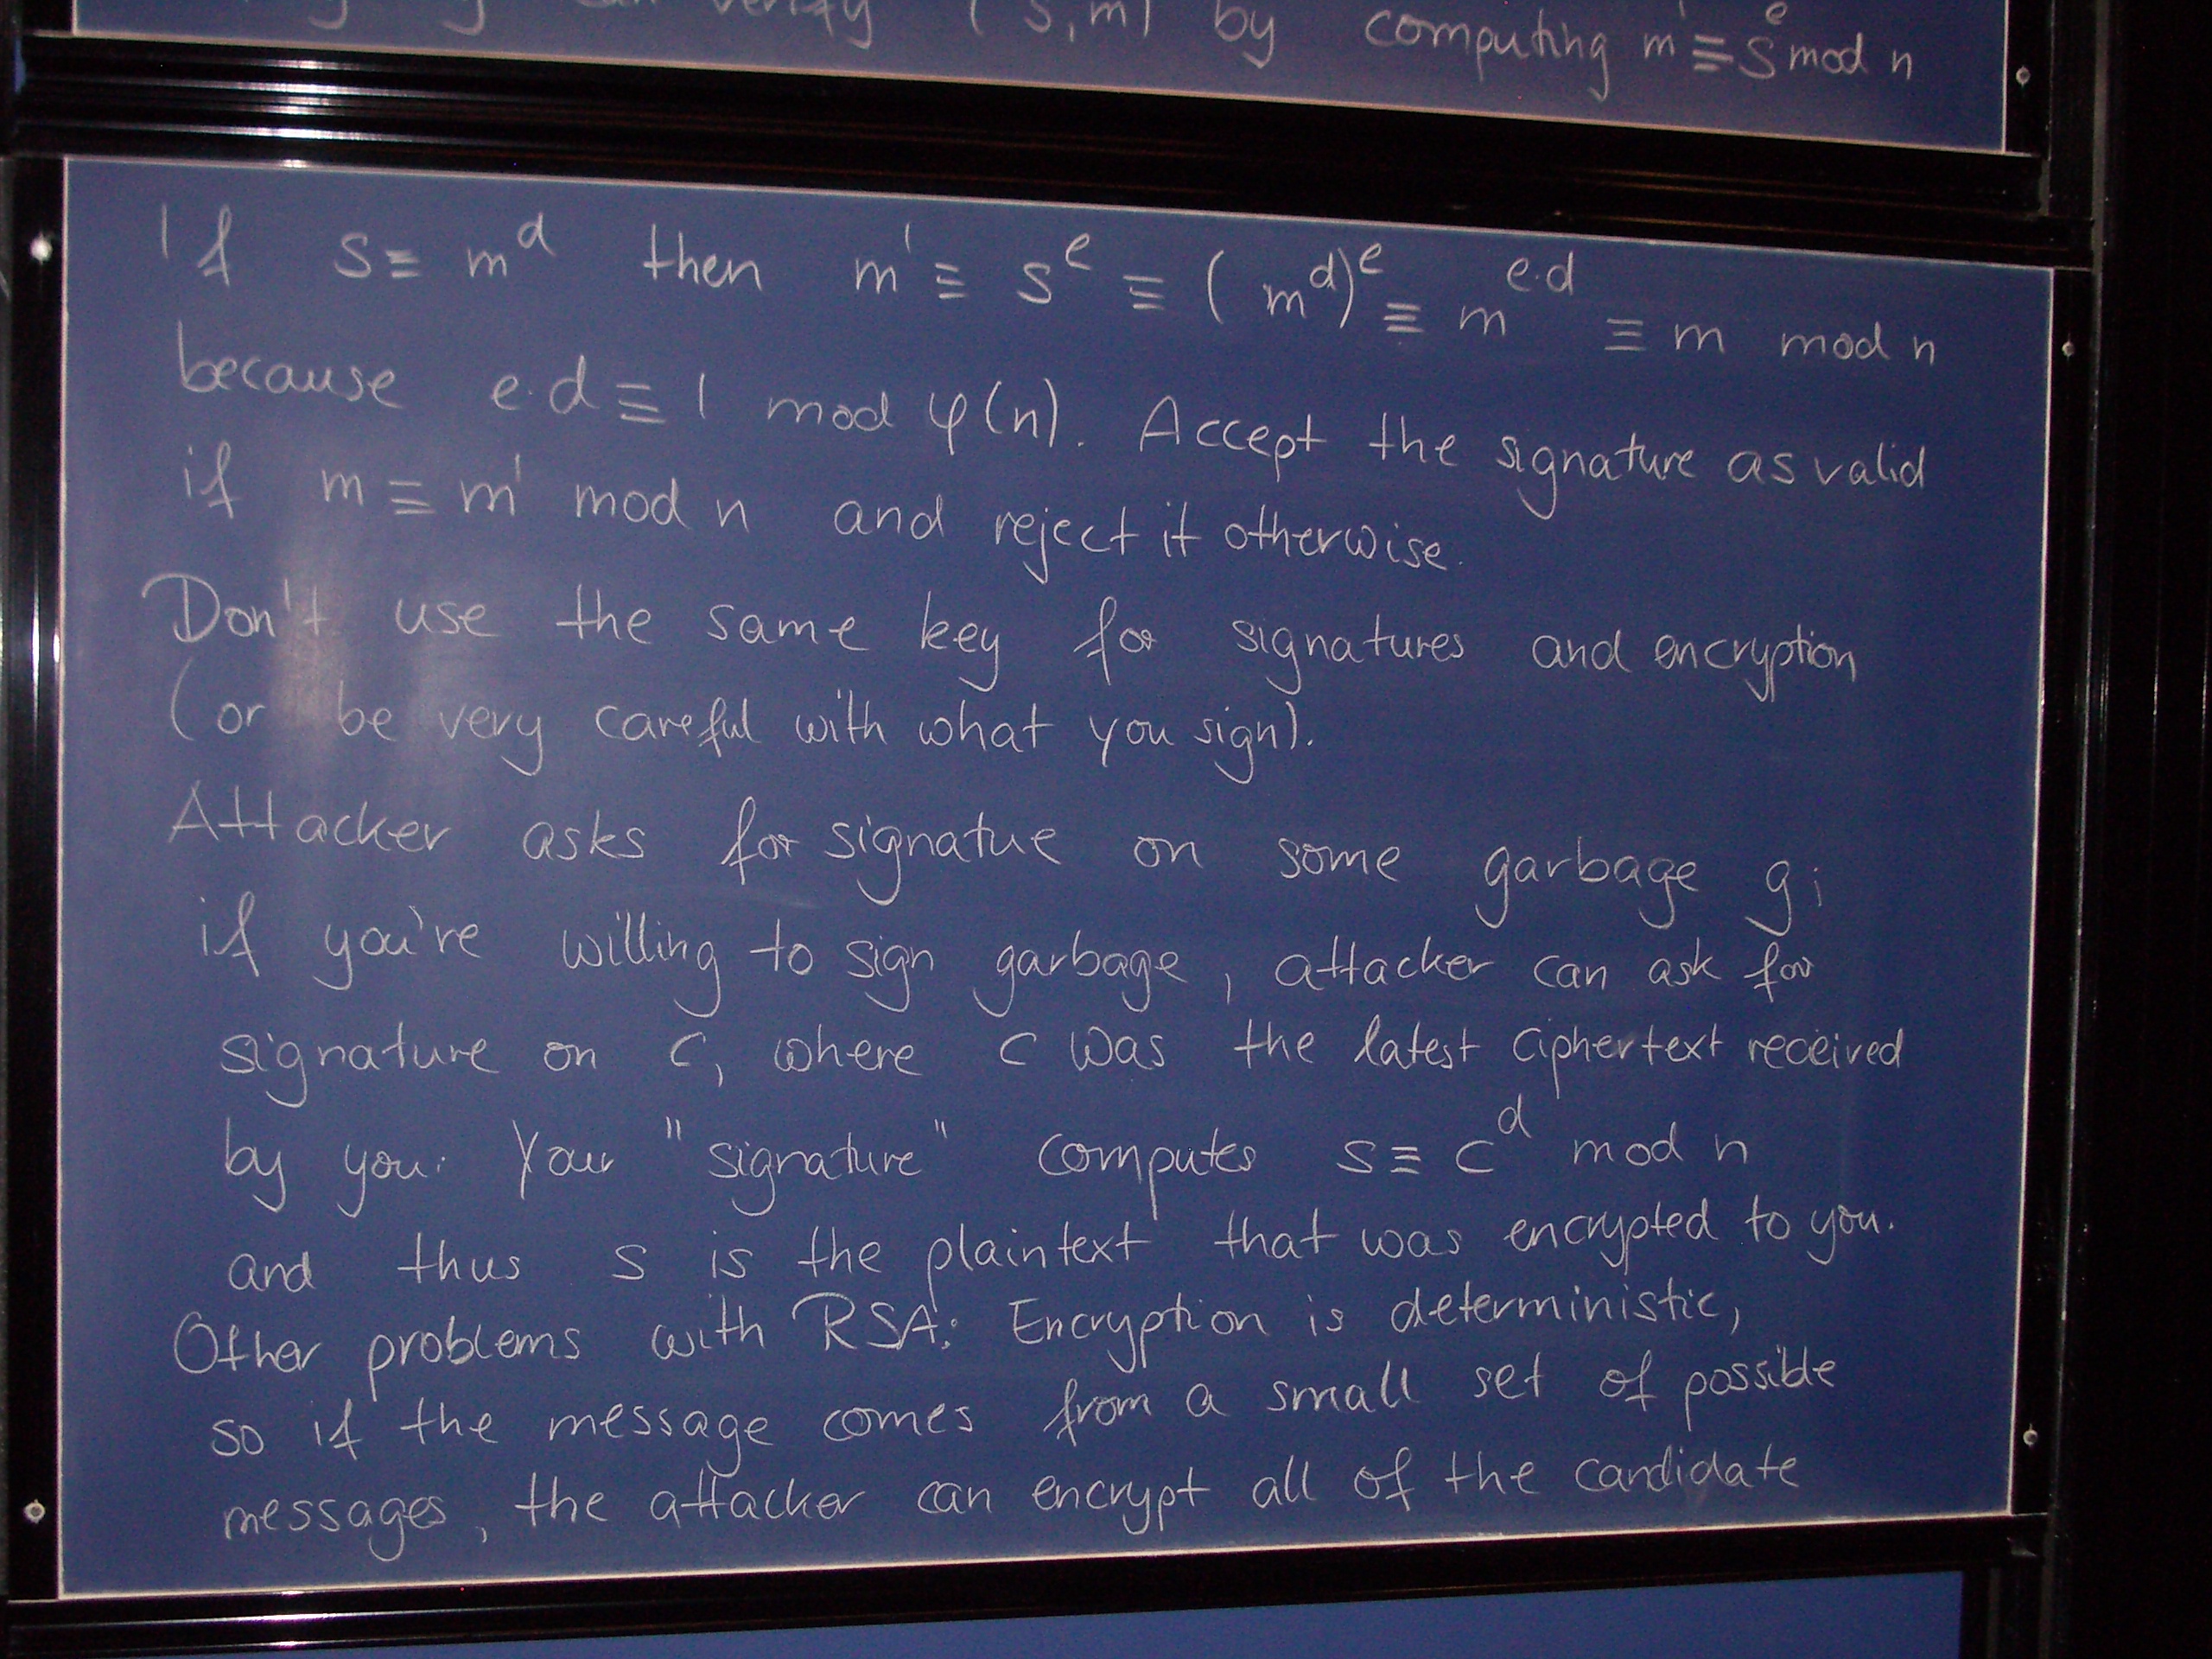 can verify (s,m) by computing m' ≡ s^e mod n
If s ≡ m^d then m' ≡ s^e ≡ (m^d)^e ≡ m^{e·d} ≡ m mod n
because e·d ≡ 1 mod φ(n). Accept the signature as valid
if m ≡ m' mod n and reject it otherwise.
Don't use the same key for signatures and encryption
(or be very careful with what you sign).
Attacker asks for signatue on some garbage g;
if you're willing to sign garbage, attacker can ask for
signature on c, where c was the latest ciphertext received
by you. Your "signature" computes s ≡ c^d mod n
and thus s is the plaintext that was encrypted to you.
Other problems with RSA: Encryption is deterministic,
so if the message comes from a small set of possible
messages, the attacker can encrypt all of the candidate